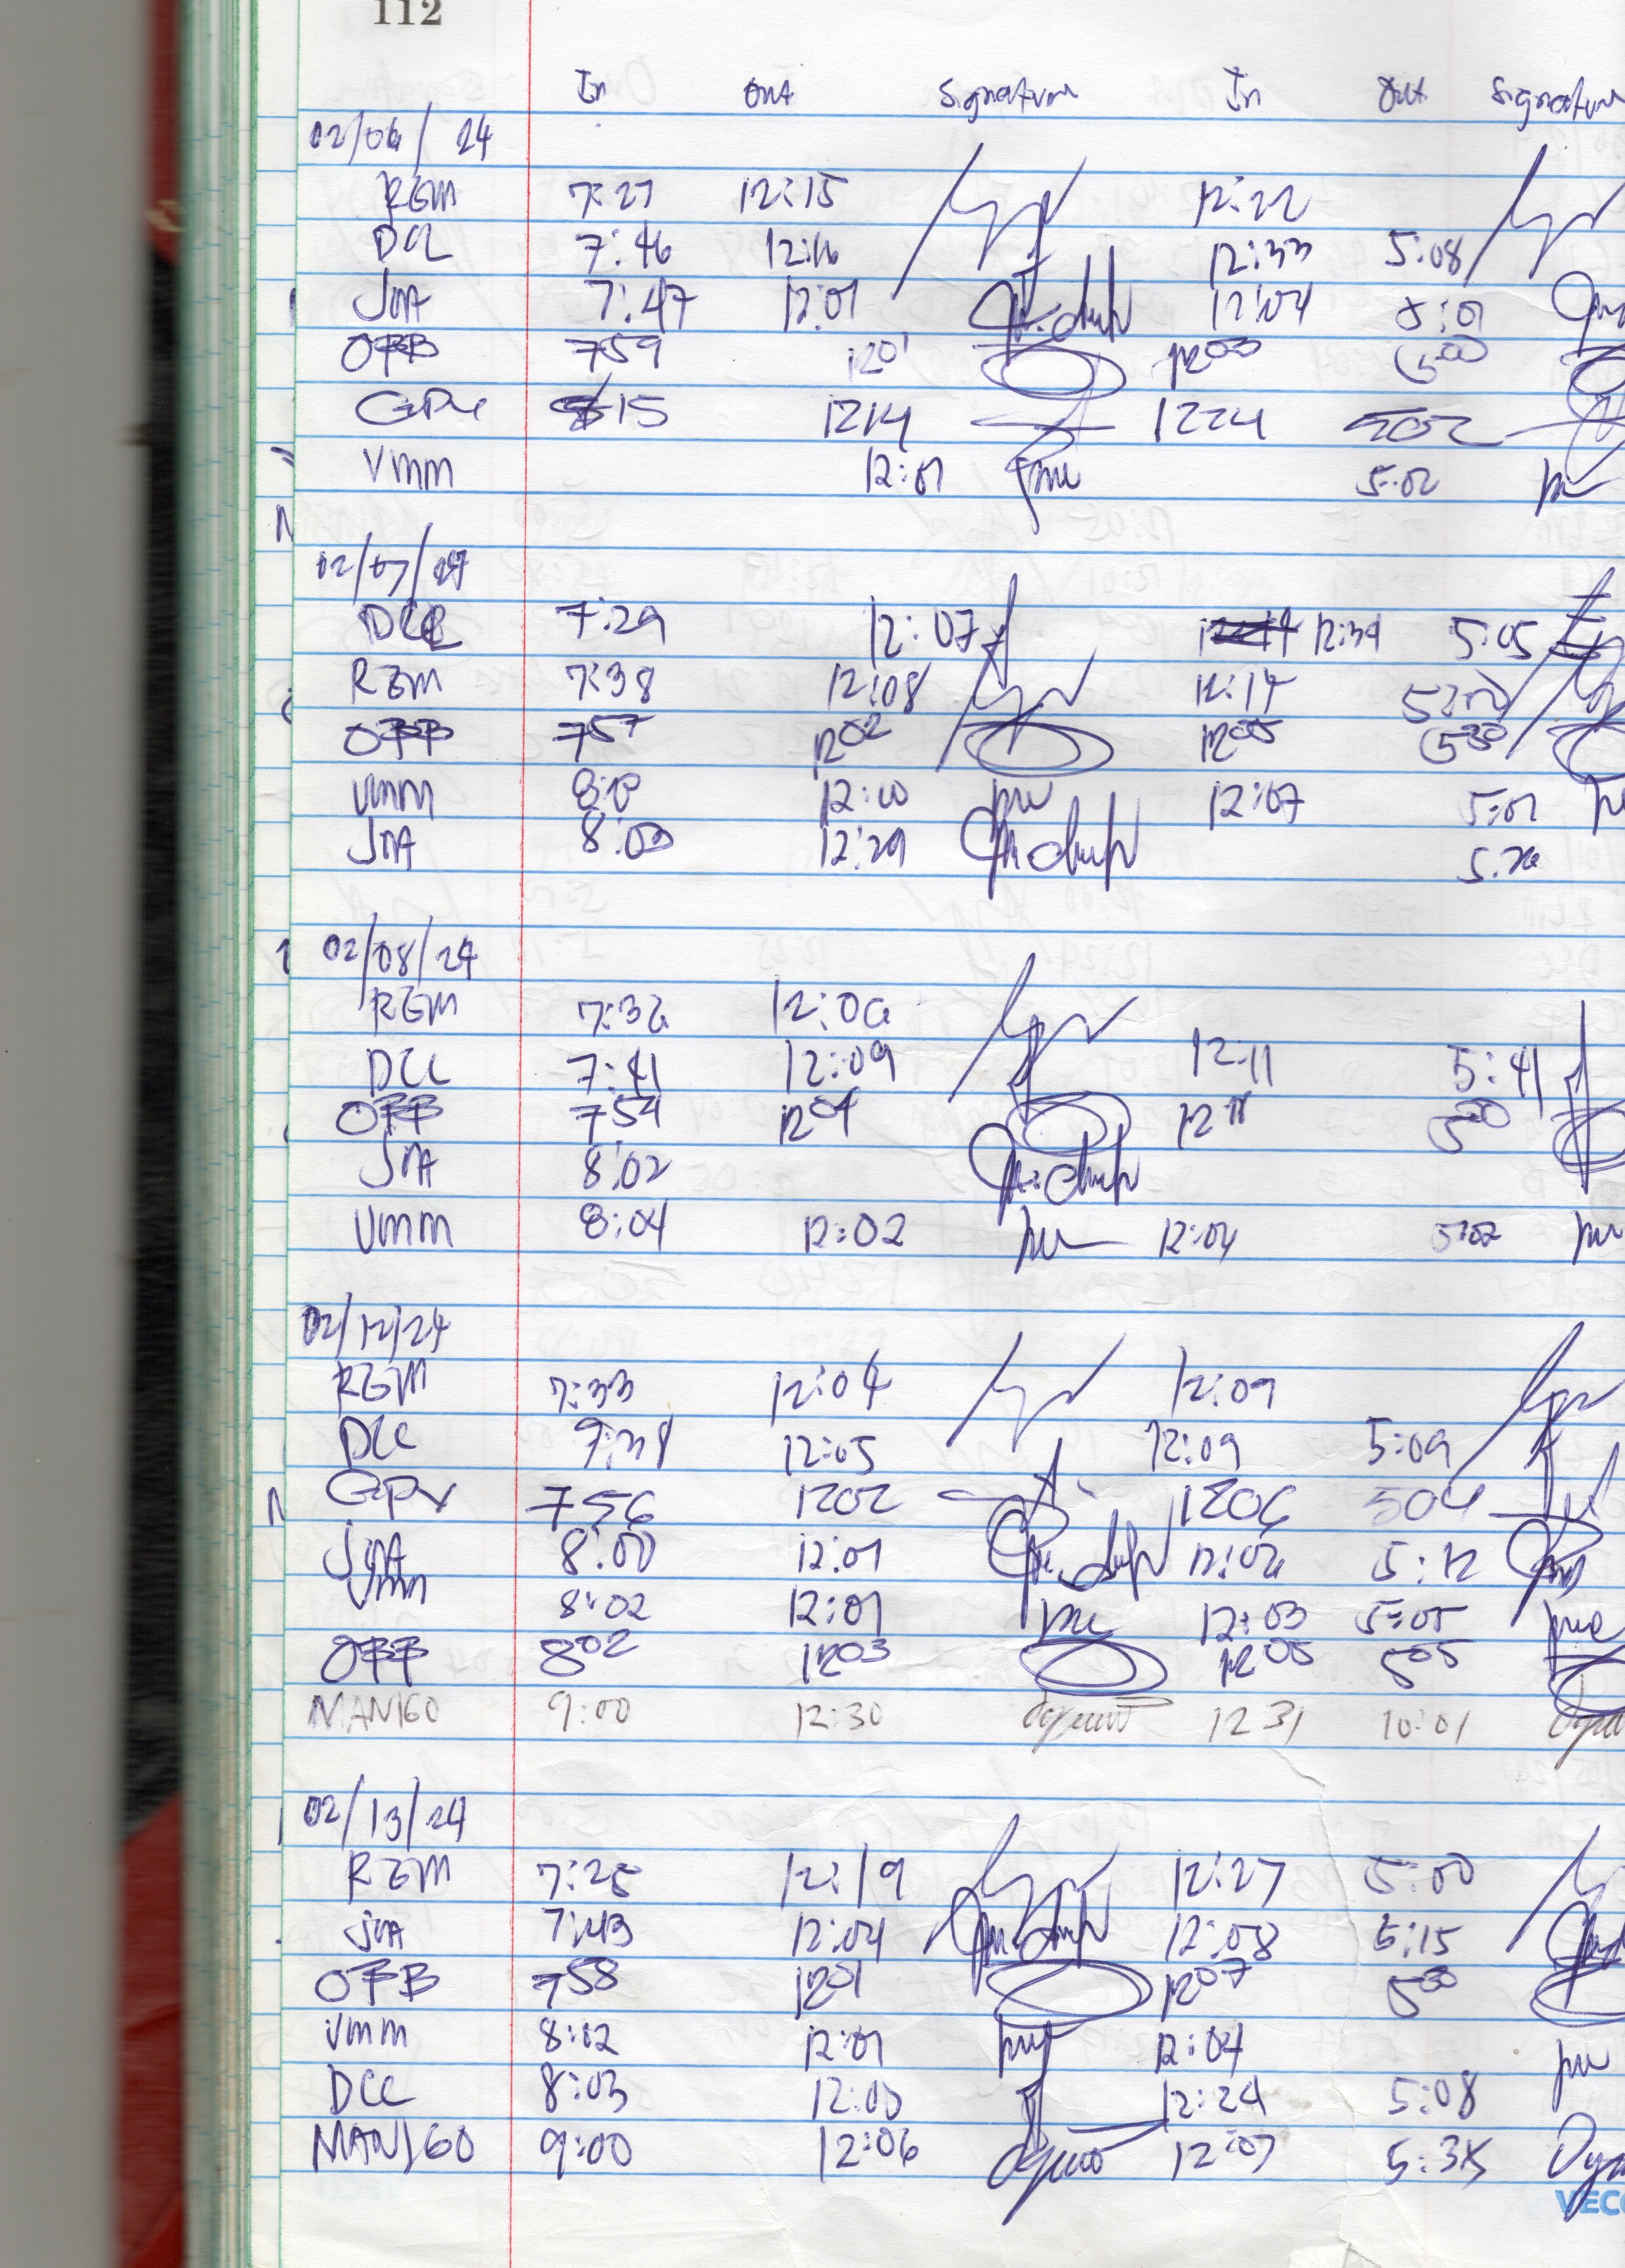 112
In Out Signature In Out Signature
02/06/24
RZM 7:27 12:15 12:22
DCL 7:46 12:16 12:33 5:08
JVA 7:47 12:01 12:04 5:01
OFB 7 59 12 01 12 03 5 00
GPV 815 1214 1224 502
VMM 12:01 5:02
02/07/24
DCL 7:29 12:07 12:39 5:05
RZM 7:38 12:08 12:14
OFB 7 57 12 02 12 05 5 30
VMM 12:00 12:07 5:01
JVA 8:03 12:29
02/08/24
RZM 7:36 12:06
DCC 7:41 12:09 12:11 5:41
OFB 7 54 12 04 12 11 5 00
JVA 8:02
VMM 8:04 12:02 12:04 5:02
02/12/24
RZM 7:33 12:04 12:09
DCC 12:05 12:09 5:09
GPV 756 1202 1206 504
JVA 8:00 12:01 12:02 5:12
VMM 8:02 12:01 12:03 5:05
OFB 8 02 12 03 12 05 5 05
MANIGO 9:00 12:30 12 31 10:01
02/13/24
RZM 7:25 12:19 12:27 5:00
JVA 7:43 12:04 12:08 5:15
OFB 7 58 12 01 12 07 5 30
VMM 8:02 12:01 12:04
DCC 8:03 12:03 12:24 5:08
MANIGO 9:00 12:06 12:07 5:35